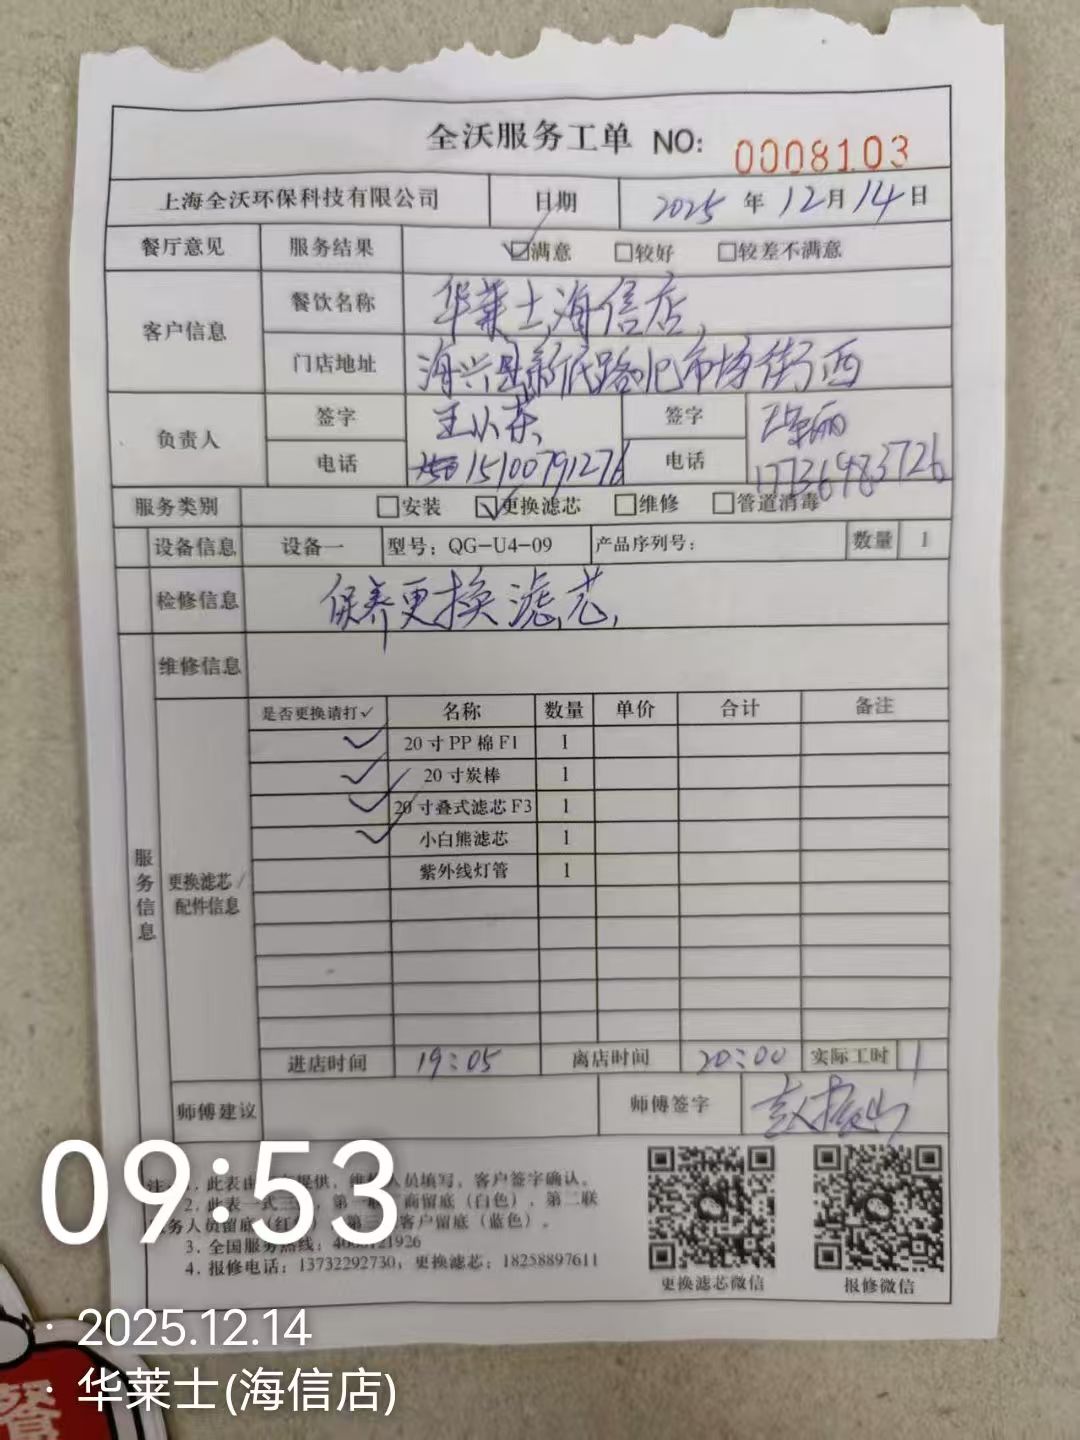 全沃服务工单 NO: 0008103
上海全沃环保科技有限公司 日期 2025 年 12 月 14 日
餐厅意见 服务结果 ☑满意 □较好 □较差不满意
客户信息 餐饮名称 华莱士海信店
门店地址 海兴县新民路北市场街西
负责人 签字 王小荣 签字
电话 15100791276 电话 17736483726
服务类别 □安装 ☑更换滤芯 □维修 □管道消毒
设备信息 设备一 型号：QG-U4-09 产品序列号： 数量 1
检修信息 保养更换滤芯
维修信息
服务信息
更换滤芯/配件信息
是否更换请打✓ 名称 数量 单价 合计 备注
✓ 20寸PP棉F1 1
✓ 20寸炭棒 1
✓ 20寸叠式滤芯F3 1
✓ 小白熊滤芯 1
紫外线灯管 1
进店时间 19:05 离店时间 20:00 实际工时 1
师傅建议 师傅签字
注 1．此表由 提供，维 人员填写，客户签字确认。
2．此表一式三 ，第一联 商留底（白色），第二联
务人员留底（红 ） 第三 客户留底（蓝色）。
3．全国服务热线：4000121926
4．报修电话：13732292730；更换滤芯：18258897611
更换滤芯微信 报修微信
09:53
· 2025.12.14
· 华莱士(海信店)
餐